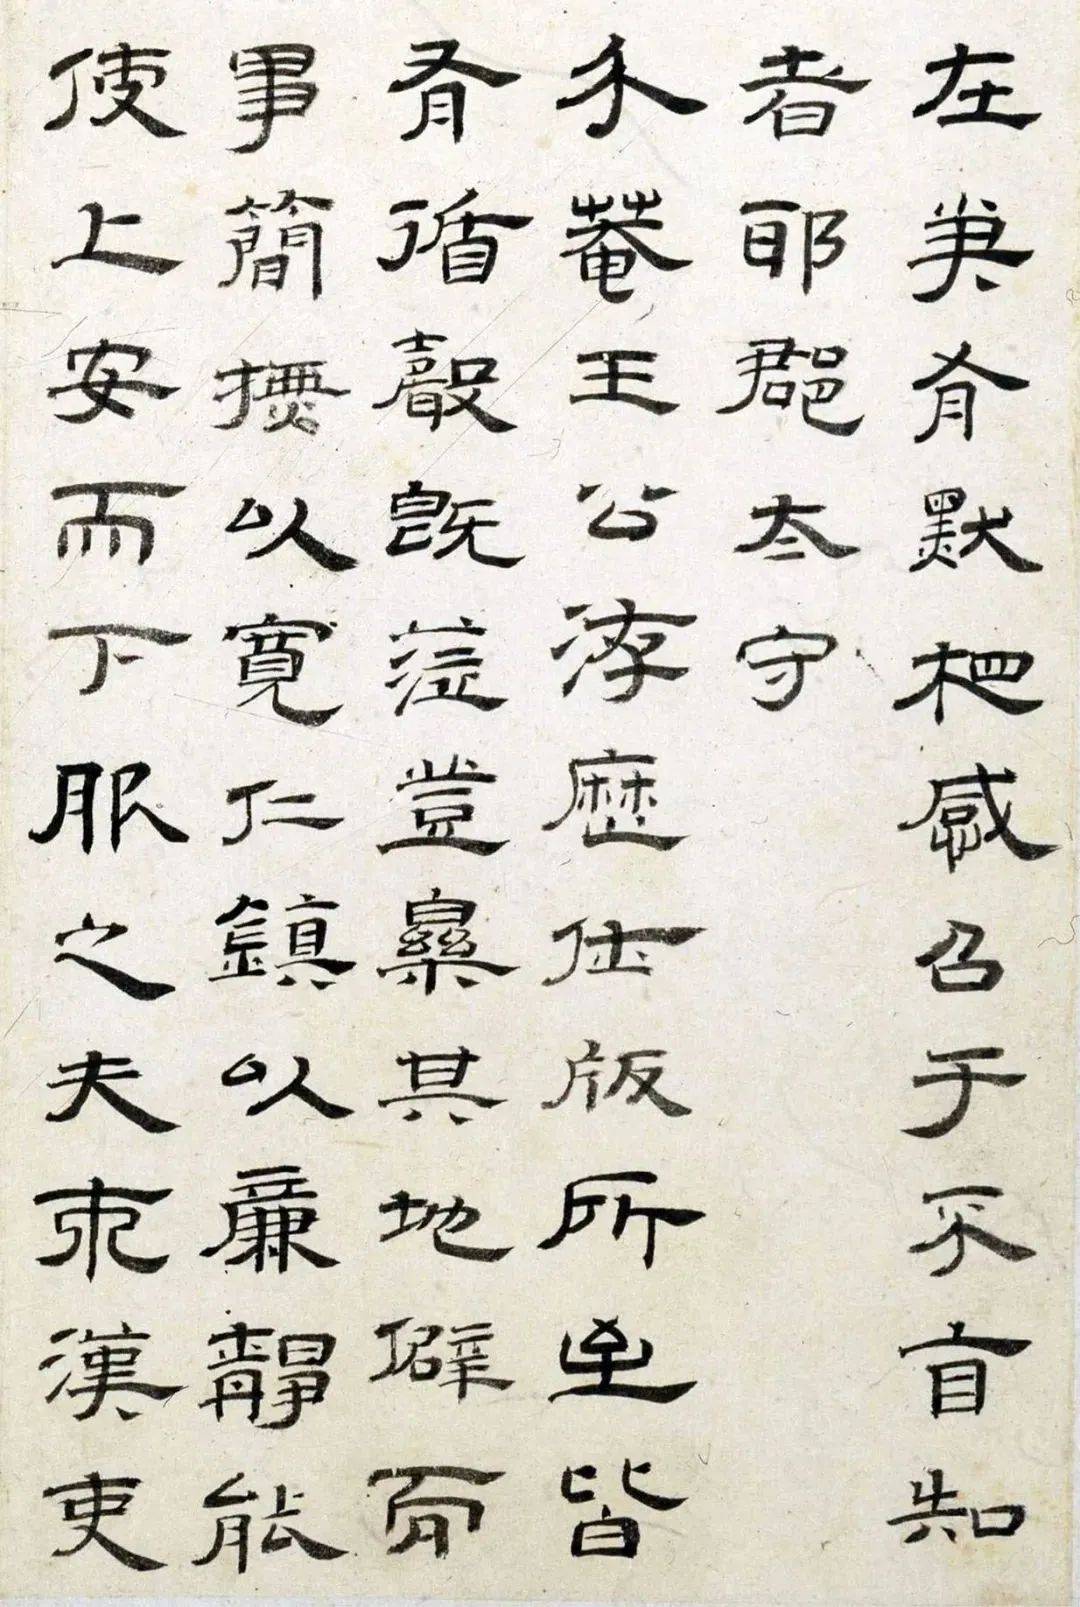 在兾有默杷感召于不盲知
者耶郡太守
禾菴王公游歷仕版所至皆
有循聲既蒞豈㬎其地僻而
事簡撫以寬仁鎮以廉靜能
使上安而下服之夫東漢吏